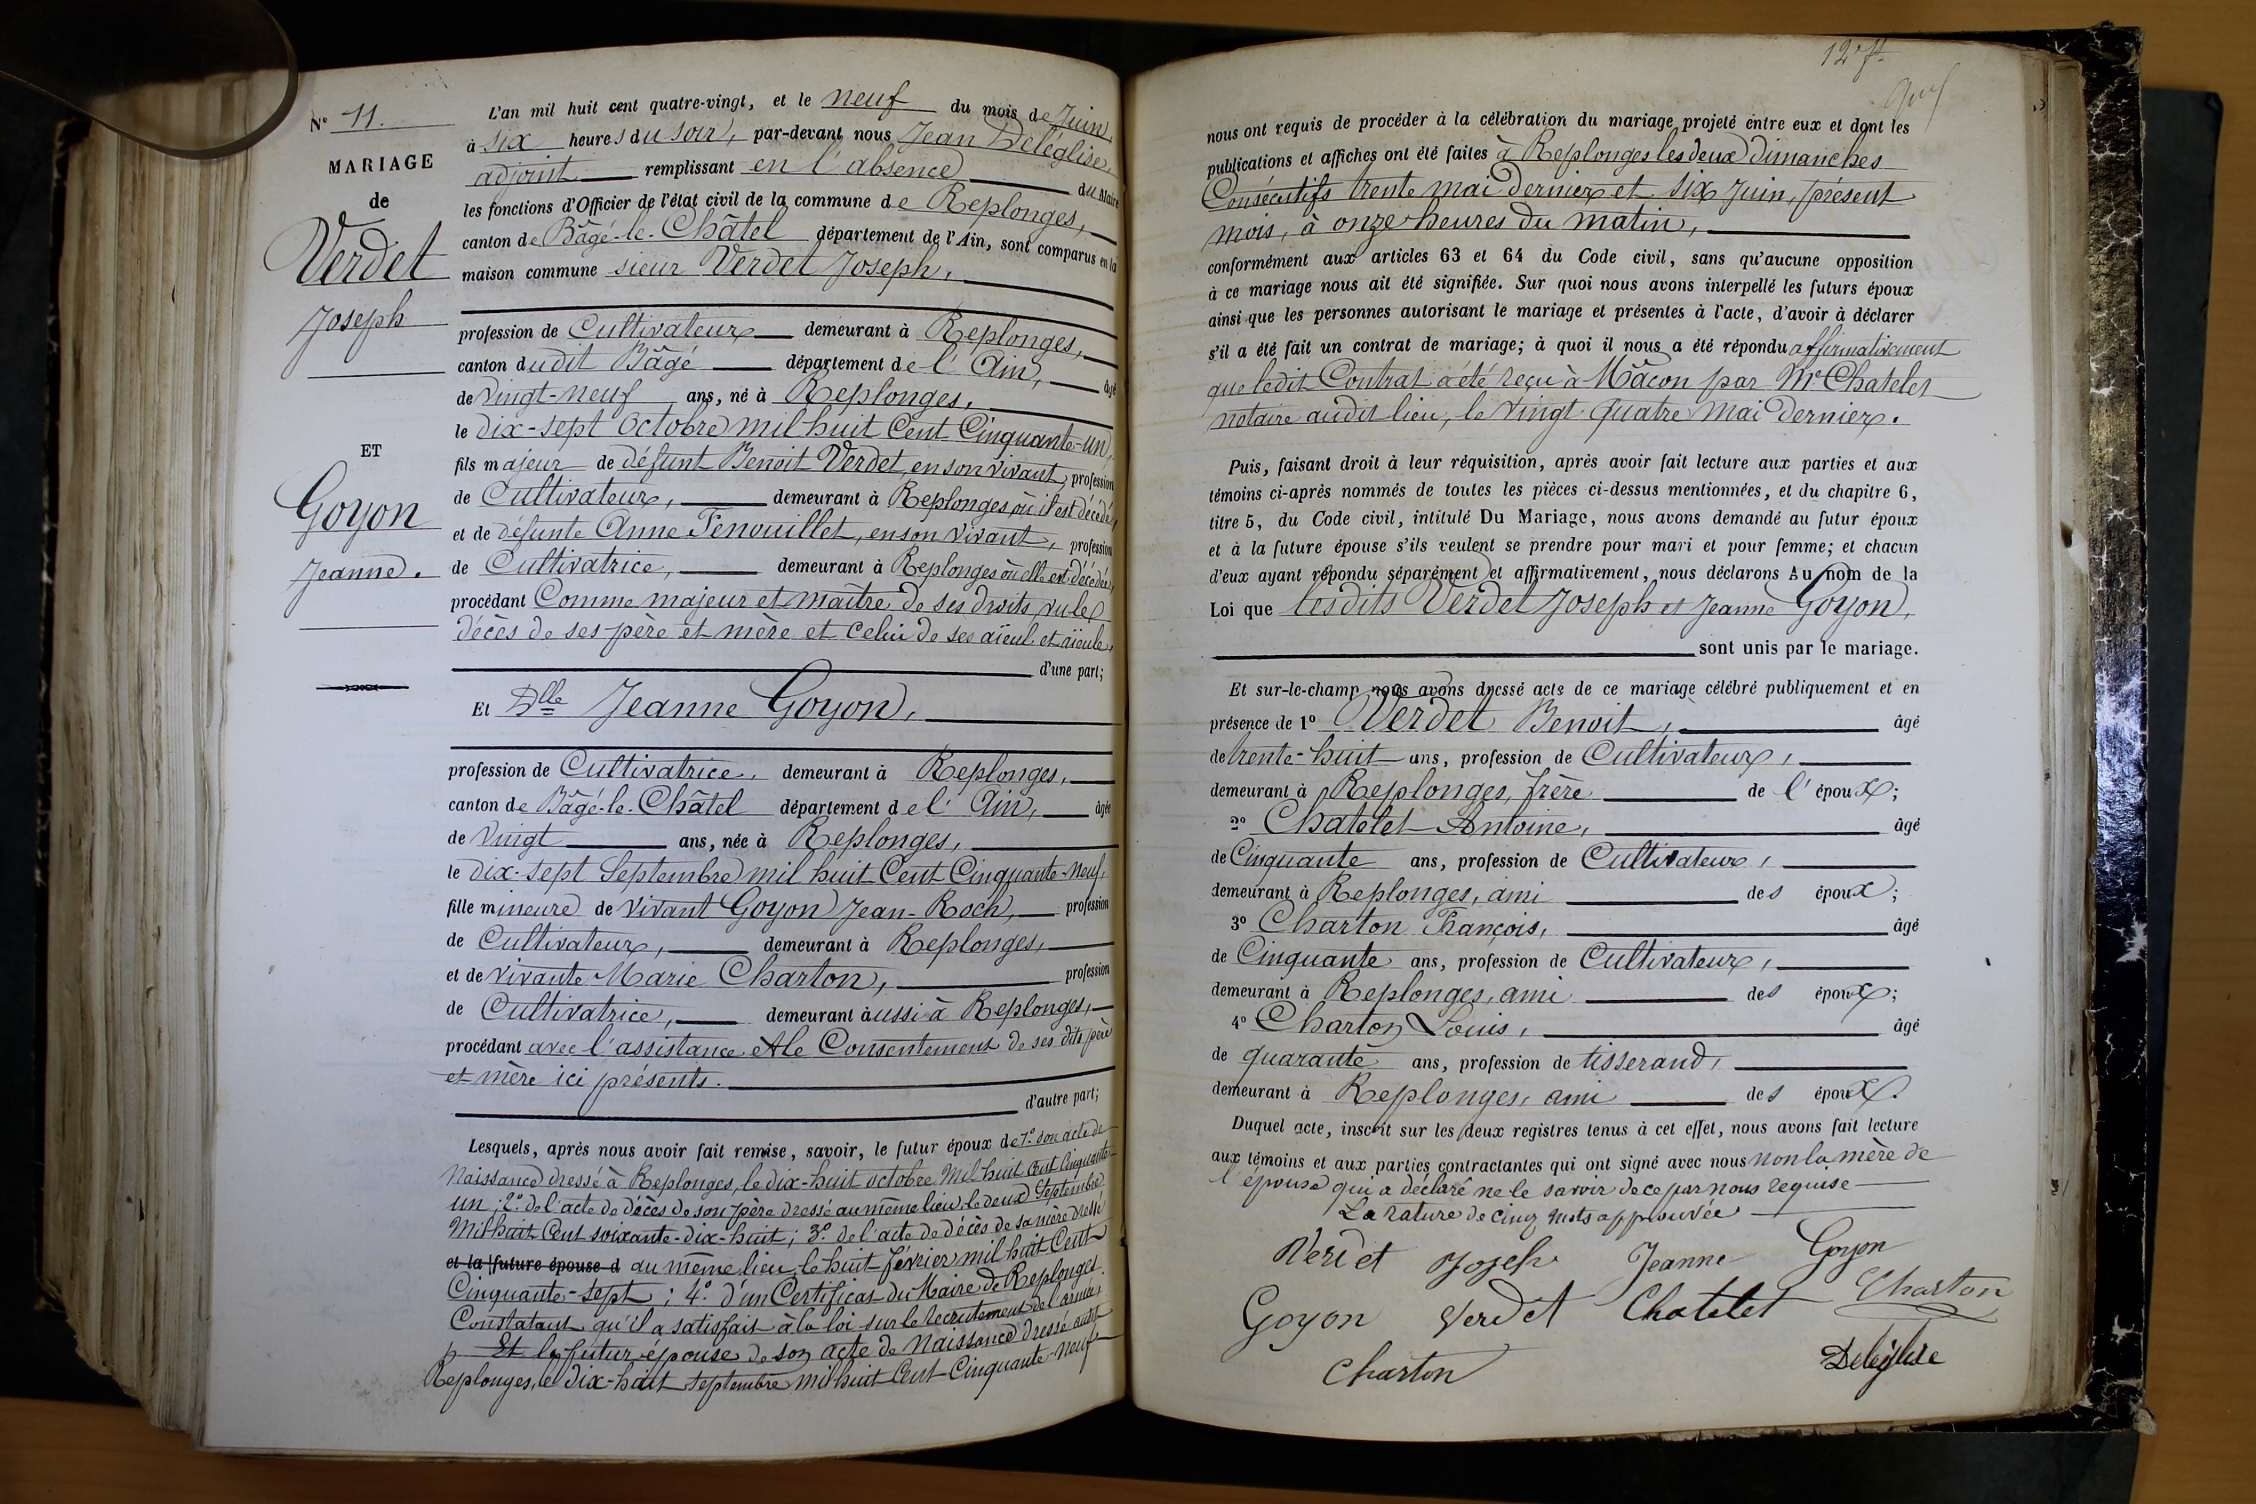 N° 11.
MARIAGE
de
Verdet
Joseph
ET
Goyon
Jeanne.
L'an mil huit cent quatre-vingt, et le neuf du mois de Juin,
à six heures du soir, par-devant nous Jean Deléglise,
adjoint remplissant en l'absence du Maire
les fonctions d'Officier de l'état civil de la commune de Replonges,
canton de Bâgé-le-Châtel département de l'Ain, sont comparus en la
maison commune sieur Verdet Joseph,
profession de Cultivateur demeurant à Replonges,
canton dudit Bâgé département de l'Ain, âgé
de vingt-neuf ans, né à Replonges,
le dix-sept Octobre mil huit Cent Cinquante-un,
fils majeur de défunt Benoit Verdet, en son vivant, profession
de Cultivateur, demeurant à Replonges où il est décédé,
et de défunte Anne Fenouillet, en son vivant, profession
de Cultivatrice, demeurant à Replonges où elle est décédée,
procédant Comme majeur et maître de ses droits, vu le
décès de ses père et mère et celui de ses aïeul et aïeule.
d'une part;
Et Dlle Jeanne Goyon,
profession de Cultivatrice, demeurant à Replonges,
canton de Bâgé-le-Châtel département de l'Ain, âgée
de vingt ans, née à Replonges,
le dix-sept Septembre mil huit Cent Cinquante-neuf,
fille mineure de vivant Goyon Jean-Roch, profession
de Cultivateur, demeurant à Replonges,
et de vivante Marie Charton, profession
de Cultivatrice, demeurant aussi à Replonges,
procédant avec l'assistance et le Consentement de ses dits père
et mère ici présents.
d'autre part;
Lesquels, après nous avoir fait remise, savoir, le futur époux de 1° son acte de
Naissance dressé à Replonges, le dix-huit octobre Mil huit Cent Cinquante-
un; 2° de l'acte de décès de son père dressé au même lieu, le deux Septembre
Mil huit Cent soixante-dix-huit; 3° de l'acte de décès de sa mère dressé
et la future épouse d au même lieu, le huit février mil huit Cent
Cinquante-sept; 4° d'un Certificat du Maire de Replonges
Constatant qu'il a satisfait à la loi sur le recrutement de l'armée
Et la futur épouse de son acte de Naissance dressé audit
Replonges, le dix-huit septembre mil huit Cent Cinquante-neuf
nous ont requis de procéder à la célébration du mariage projeté entre eux et dont les
publications et affiches ont été faites à Replonges les deux dimanches
Consécutifs trente mai dernier et six juin, présent
mois, à onze heures du matin,
conformément aux articles 63 et 64 du Code civil, sans qu'aucune opposition
à ce mariage nous ait été signifiée. Sur quoi nous avons interpellé les futurs époux
ainsi que les personnes autorisant le mariage et présentes à l'acte, d'avoir à déclarer
s'il a été fait un contrat de mariage; à quoi il nous a été répondu affirmativement
que ledit Contrat a été reçu à Mâcon par Me Chatelet
notaire audit lieu, le vingt-quatre mai dernier.
Puis, faisant droit à leur réquisition, après avoir fait lecture aux parties et aux
témoins ci-après nommés de toutes les pièces ci-dessus mentionnées, et du chapitre 6,
titre 5, du Code civil, intitulé Du Mariage, nous avons demandé au futur époux
et à la future épouse s'ils veulent se prendre pour mari et pour femme; et chacun
d'eux ayant répondu séparément et affirmativement, nous déclarons Au nom de la
Loi que lesdits Verdet Joseph et Jeanne Goyon,
sont unis par le mariage.
Et sur-le-champ nous avons dressé acte de ce mariage célébré publiquement et en
présence de 1° Verdet Benoit, âgé
de trente-huit ans, profession de Cultivateur,
demeurant à Replonges, frère de l'époux;
2° Chatelet Antoine, âgé
de Cinquante ans, profession de Cultivateur,
demeurant à Replonges, ami des époux;
3° Charton François, âgé
de Cinquante ans, profession de Cultivateur,
demeurant à Replonges, ami des époux;
4° Charton Louis, âgé
de quarante ans, profession de tisserand,
demeurant à Replonges, ami des époux.
Duquel acte, inscrit sur les deux registres tenus à cet effet, nous avons fait lecture
aux témoins et aux parties contractantes qui ont signé avec nous non la mère de
l'épouse qui a déclaré ne le savoir de ce par nous requise
La rature de cinq mots approuvée
Verdet Joseph Jeanne Goyon
Goyon Verdet Chatelet Charton
Charton Deléglise